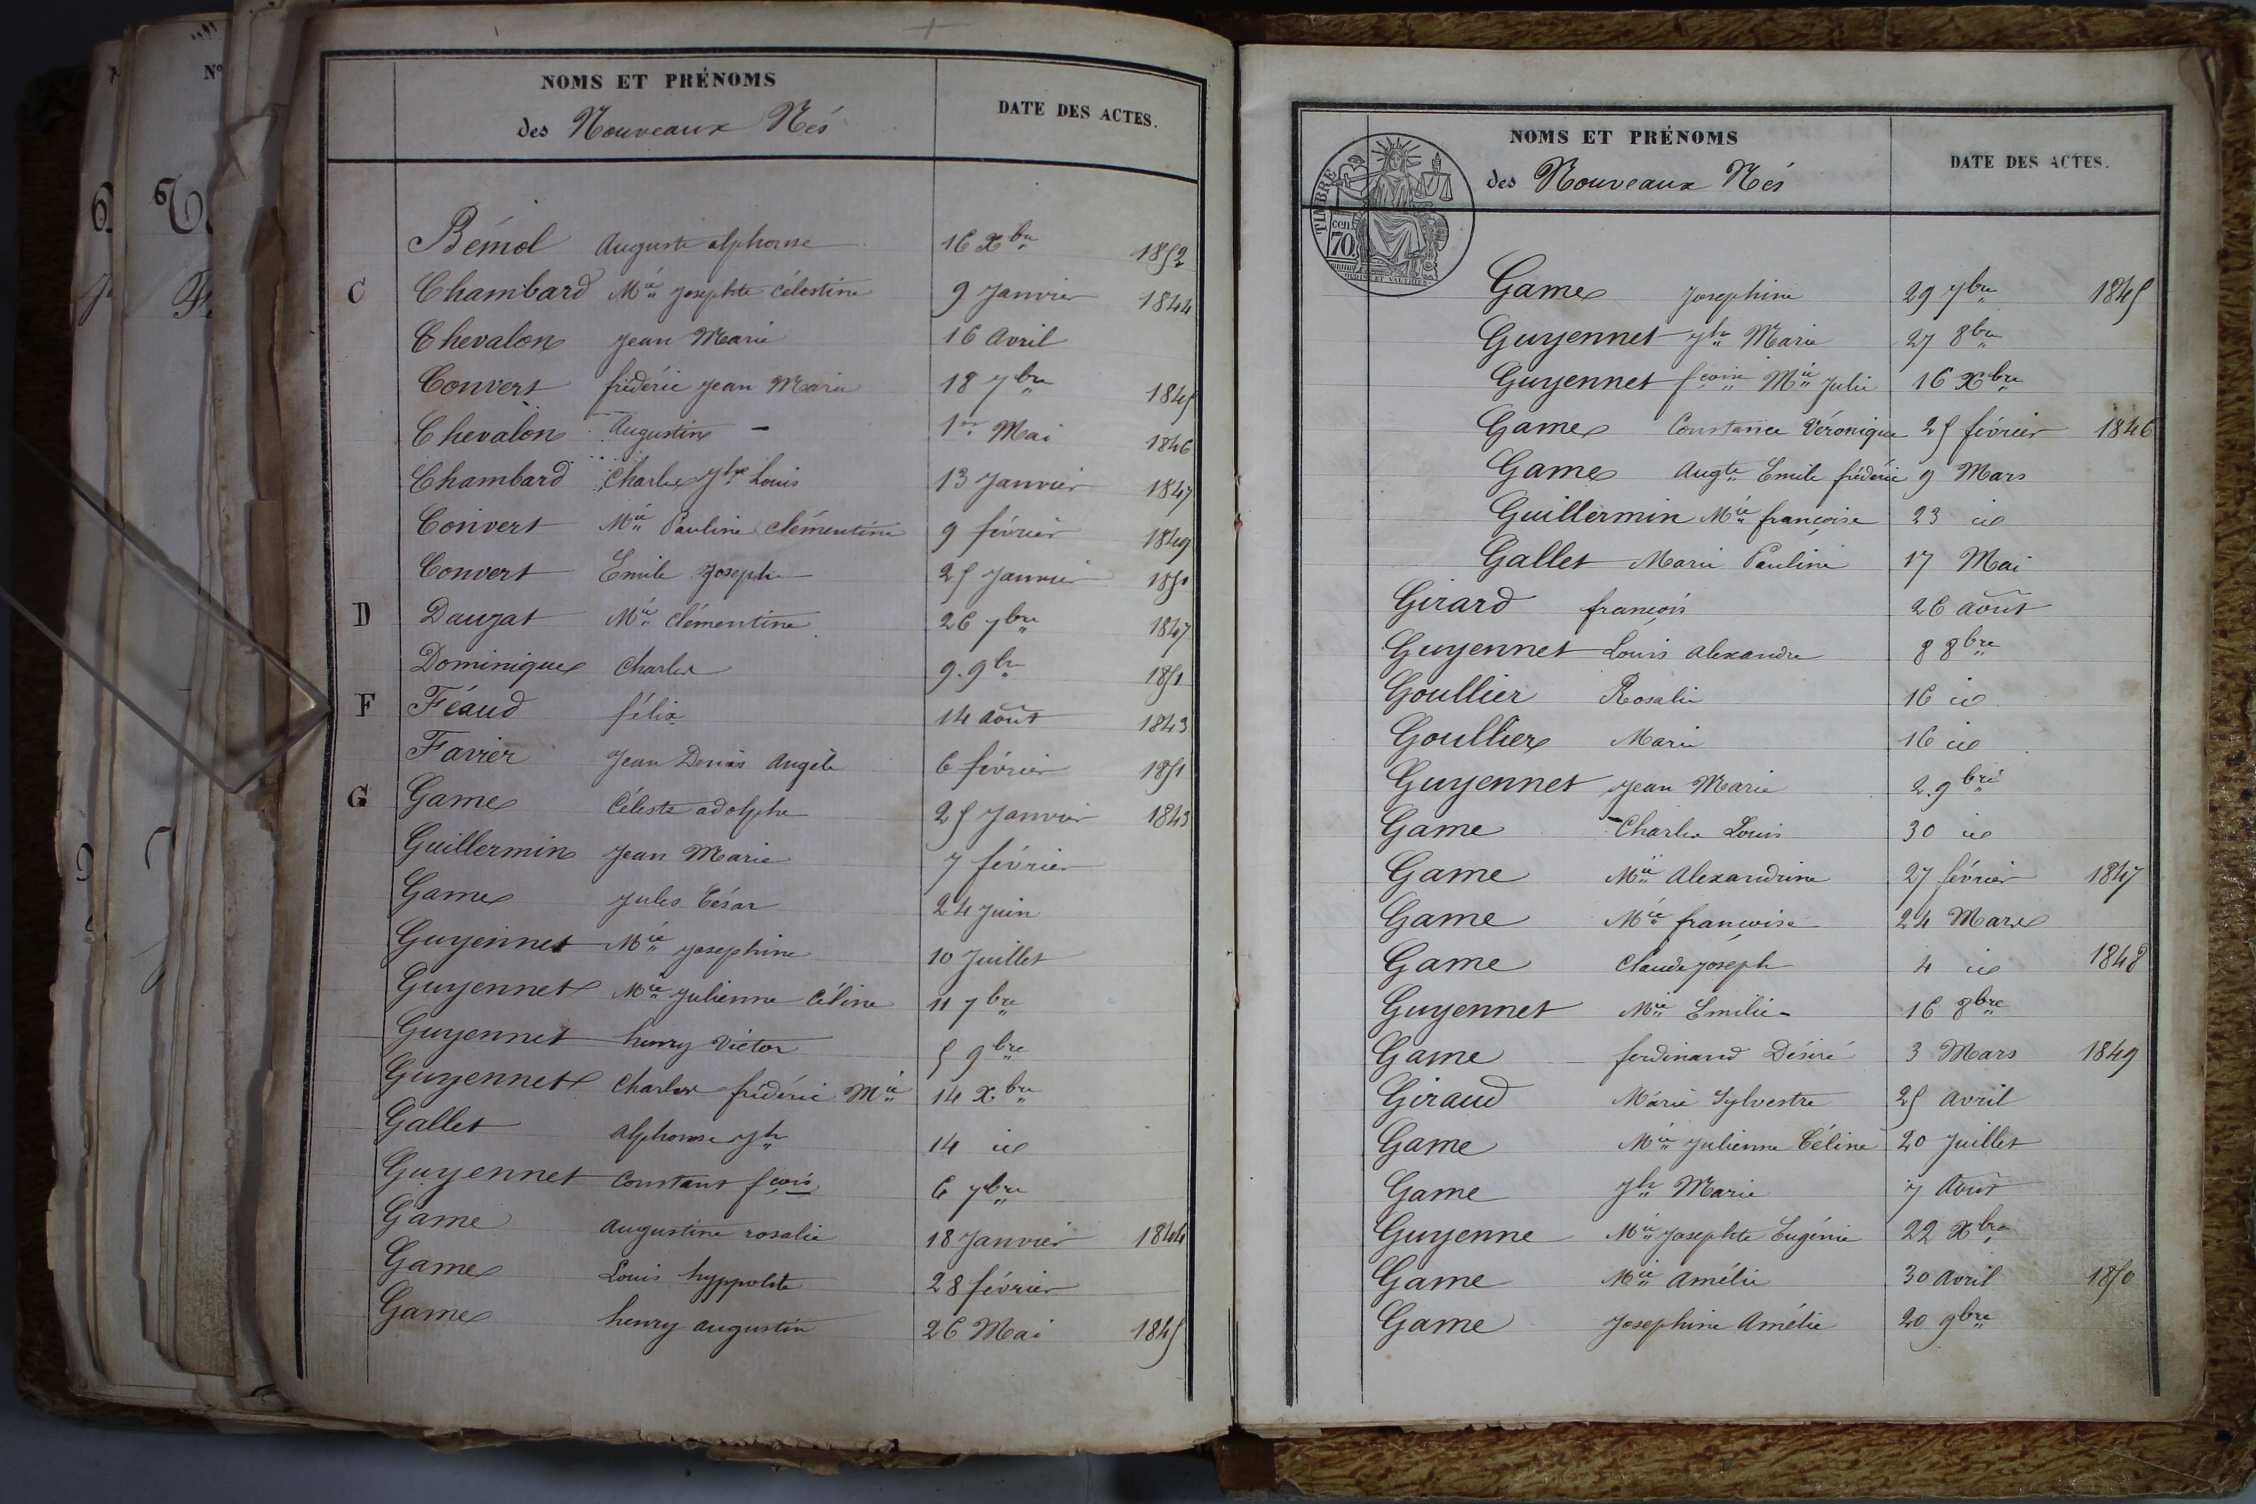 NOMS ET PRÉNOMS
des Nouveaux Nés
DATE DES ACTES.
Bémol Auguste alphonse 16 Xbre 1852
C Chambard Mie Josephte Célestine 9 Janvier 1844
Chevalon Jean Marie 16 Avril
Convert frédéric Jean Marie 18 7bre 1845
Chevalon Augustin 1er Mai 1846
Chambard Charles Jh Louis 13 Janvier 1847
Convert Mie Pauline Clémentine 9 février 1849
Convert Emile Joseph 25 Janvier 1850
D Dauzat Mie Clémentine 26 7bre 1847
Dominique Charles 9. 9bre 1851
F Féaud félix 14 août 1843
Favier Jean Denis Angèle 6 février 1851
G Game Céleste adolphe 25 Janvier 1843
Guillermin Jean Marie 7 février
Game Jules César 24 Juin
Guyennet Mie Josephine 10 Juillet
Guyennet Mie Julienne Céline 11 7bre
Guyennet henry Victor 5 9bre
Guyennet Charles frédéric Mie 14 Xbre
Gallet alphonse Jh 14 id
Guyennet Constant fçois 6 7bre
Game augustine rosalie 18 Janvier 1844
Game Louis hyppolite 28 février
Game henry augustin 26 Mai 1845
NOMS ET PRÉNOMS
des Nouveaux Nés
DATE DES ACTES.
TIMBRE
70
Game Josephine 29 7bre 1845
Guyennet Jh Marie 27 8bre
Guyennet fçoise Mie Julie 16 Xbre
Game Constance Véronique 25 février 1846
Game Augte Emile frédéric 9 Mars
Guillermin Mie françoise 23 id
Gallet Marie Pauline 17 Mai
Girard françois 26 août
Guyennet Louis Alexandre 8 8bre
Goullier Rosalie 16 id
Goullier Marie 16 id
Guyennet Jean Marie 2. 9bre
Game Charles Louis 30 id
Game Mie Alexandrine 27 février 1847
Game Mie françoise 24 Mars
Game Claude Joseph 4 id 1848
Guyennet Mie Emilie 16 8bre
Game ferdinand Désiré 3 Mars 1849
Giraud Marie Sylvestre 25 avril
Game Mie Julienne Céline 20 Juillet
Game Jh Marie 7 Août
Guyenne Mie Josephte Eugénie 22 Xbre
Game Mie Amélie 30 Avril 1850
Game Josephine Amélie 20 9bre